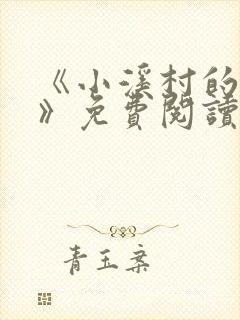 《小溪村的
》免費閱讀
青玉案